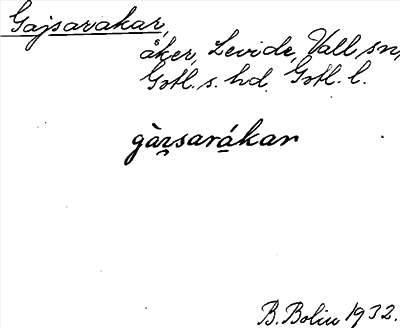 Gajsarakar,
åker, Levide, Vall sn,
Gotl. s. hd. Gotl. l.
gàɪsarákar
B. Bolin 1932.